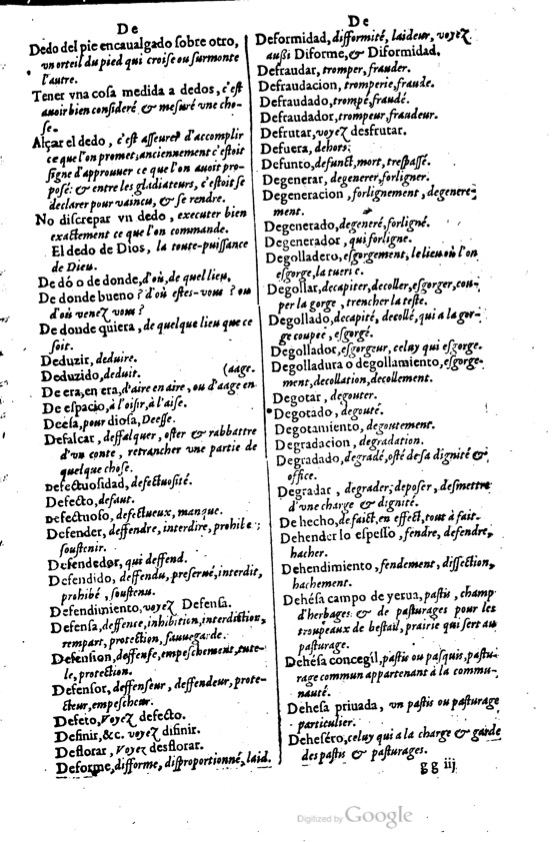 De
Dedo del pie encaualgado ſobre otro,
vn orteil du pied qui croiſe ou ſurmonte
l'autre.
Tener vna coſa medida a dedos, c'eſt
auoir bien conſideré & meſuré vne cho-
ſe.
Alçar el dedo, c'eſt aſſeurer d'accomplir
ce que l'on promet; anciennement c'eſtoit
ſigne d'approuuer ce que l'on auoit pro-
poſé: & entre les gladiateurs, c'eſtoit ſe
declarer pour vaincu, & ſe rendre.
No diſcrepar vn dedo, executer bien
exactement ce que l'on commande.
El dedo de Dios, la toute-puiſſance
de Dieu.
De dó o de donde, d'où, de quel lieu,
De donde bueno? d'où eſtes-vous? ou
d'où venez vous?
De donde quiera, de quelque lieu que ce
ſoit.
Deduzir, deduire.
Deduzido, deduit. (aage.
De era, en era, d'aire en aire, ou d'aage en
De eſpacio, à l'oiſir, à l'aiſe.
Deeſa, pour dioſa, Deeſſe.
Defalcar, deffalquer, oſter & rabbattre
d'vn conte, retrancher vne partie de
quelque choſe.
Defectuoſidad, defectuoſité.
Defecto, defaut.
Defectuoſo, defectueux, manque.
Defender, deffendre, interdire, prohiber;
ſouſtenir.
Defendedor, qui deffend.
Defendido, deffendu, preſerué, interdit,
prohibé, ſouſtenu.
Defendimiento, voyez Defenſa.
Defenſa, deffenſe, inhibition, interdiction,
rempart, protection, ſauuegarde.
Defenſion, deffenſe, empeſchement, tute-
le, protection.
Defenſor, deffenſeur, deffendeur, prote-
cteur, empeſcheur.
Defeto, Voyez defecto.
Definir, &c. voyez difinir.
Deflorar, Voyez desflorar.
Deforme, difforme, diſproportionné, laid.
De
Deformidad, difformité, laideur, voyez
auſſi Diforme, & Diformidad.
Defraudar, tromper, frauder.
Defraudacion, tromperie, fraude.
Defraudado, trompé, fraudé.
Defraudador, trompeur, fraudeur.
Defrutar, voyez desfrutar.
Defuera, dehors.
Defunto, defunct, mort, treſpaſſé.
Degenerar, degenerer, forligner.
Degeneracion, forlignement, degenere-
ment.
Degenerado, degeneré, forligné.
Degenerador, qui forligne.
Degolladero, eſgorgement, le lieu où l'on
eſgorge, la tuerie.
Degollar, decapiter, decoller, eſgorger, cou-
per la gorge, trencher la teſte.
Degollado, decapité, decollé, qui a la gor-
ge coupee, eſgorgé.
Degollador, eſgorgeur, celay qui eſgorge.
Degolladura o degollamiento, eſgorge-
ment, decollation, decollement.
Degotar, degouter.
Degotado, degouté.
Degotamiento, degoutement.
Degradacion, degradation.
Degradado, degradé, oſté de ſa dignité &
office.
Degradar, degrader, depoſer, deſmettre
d'vne charge & dignité.
De hecho, de faict, en effect, tout à fait.
Dehender lo eſpeſſo, fendre, defendre,
hacher.
Dehendimiento, fendement, diſſection,
hachement.
Dehéſa campo de yerua, paſtis, champ
d'herbages & de paſturages pour les
troupeaux de beſtail, prairie qui ſert au
paſturage.
Dehéſa concegil, paſtis ou paſquis, paſtu-
rage commun appartenant à la commu-
nauté.
Deheſa priuada, vn paſtis ou paſturage
particulier.
Deheſéro, celuy qui a la charge & garde
des paſtis & paſturages.
gg iij
Digitized by Google